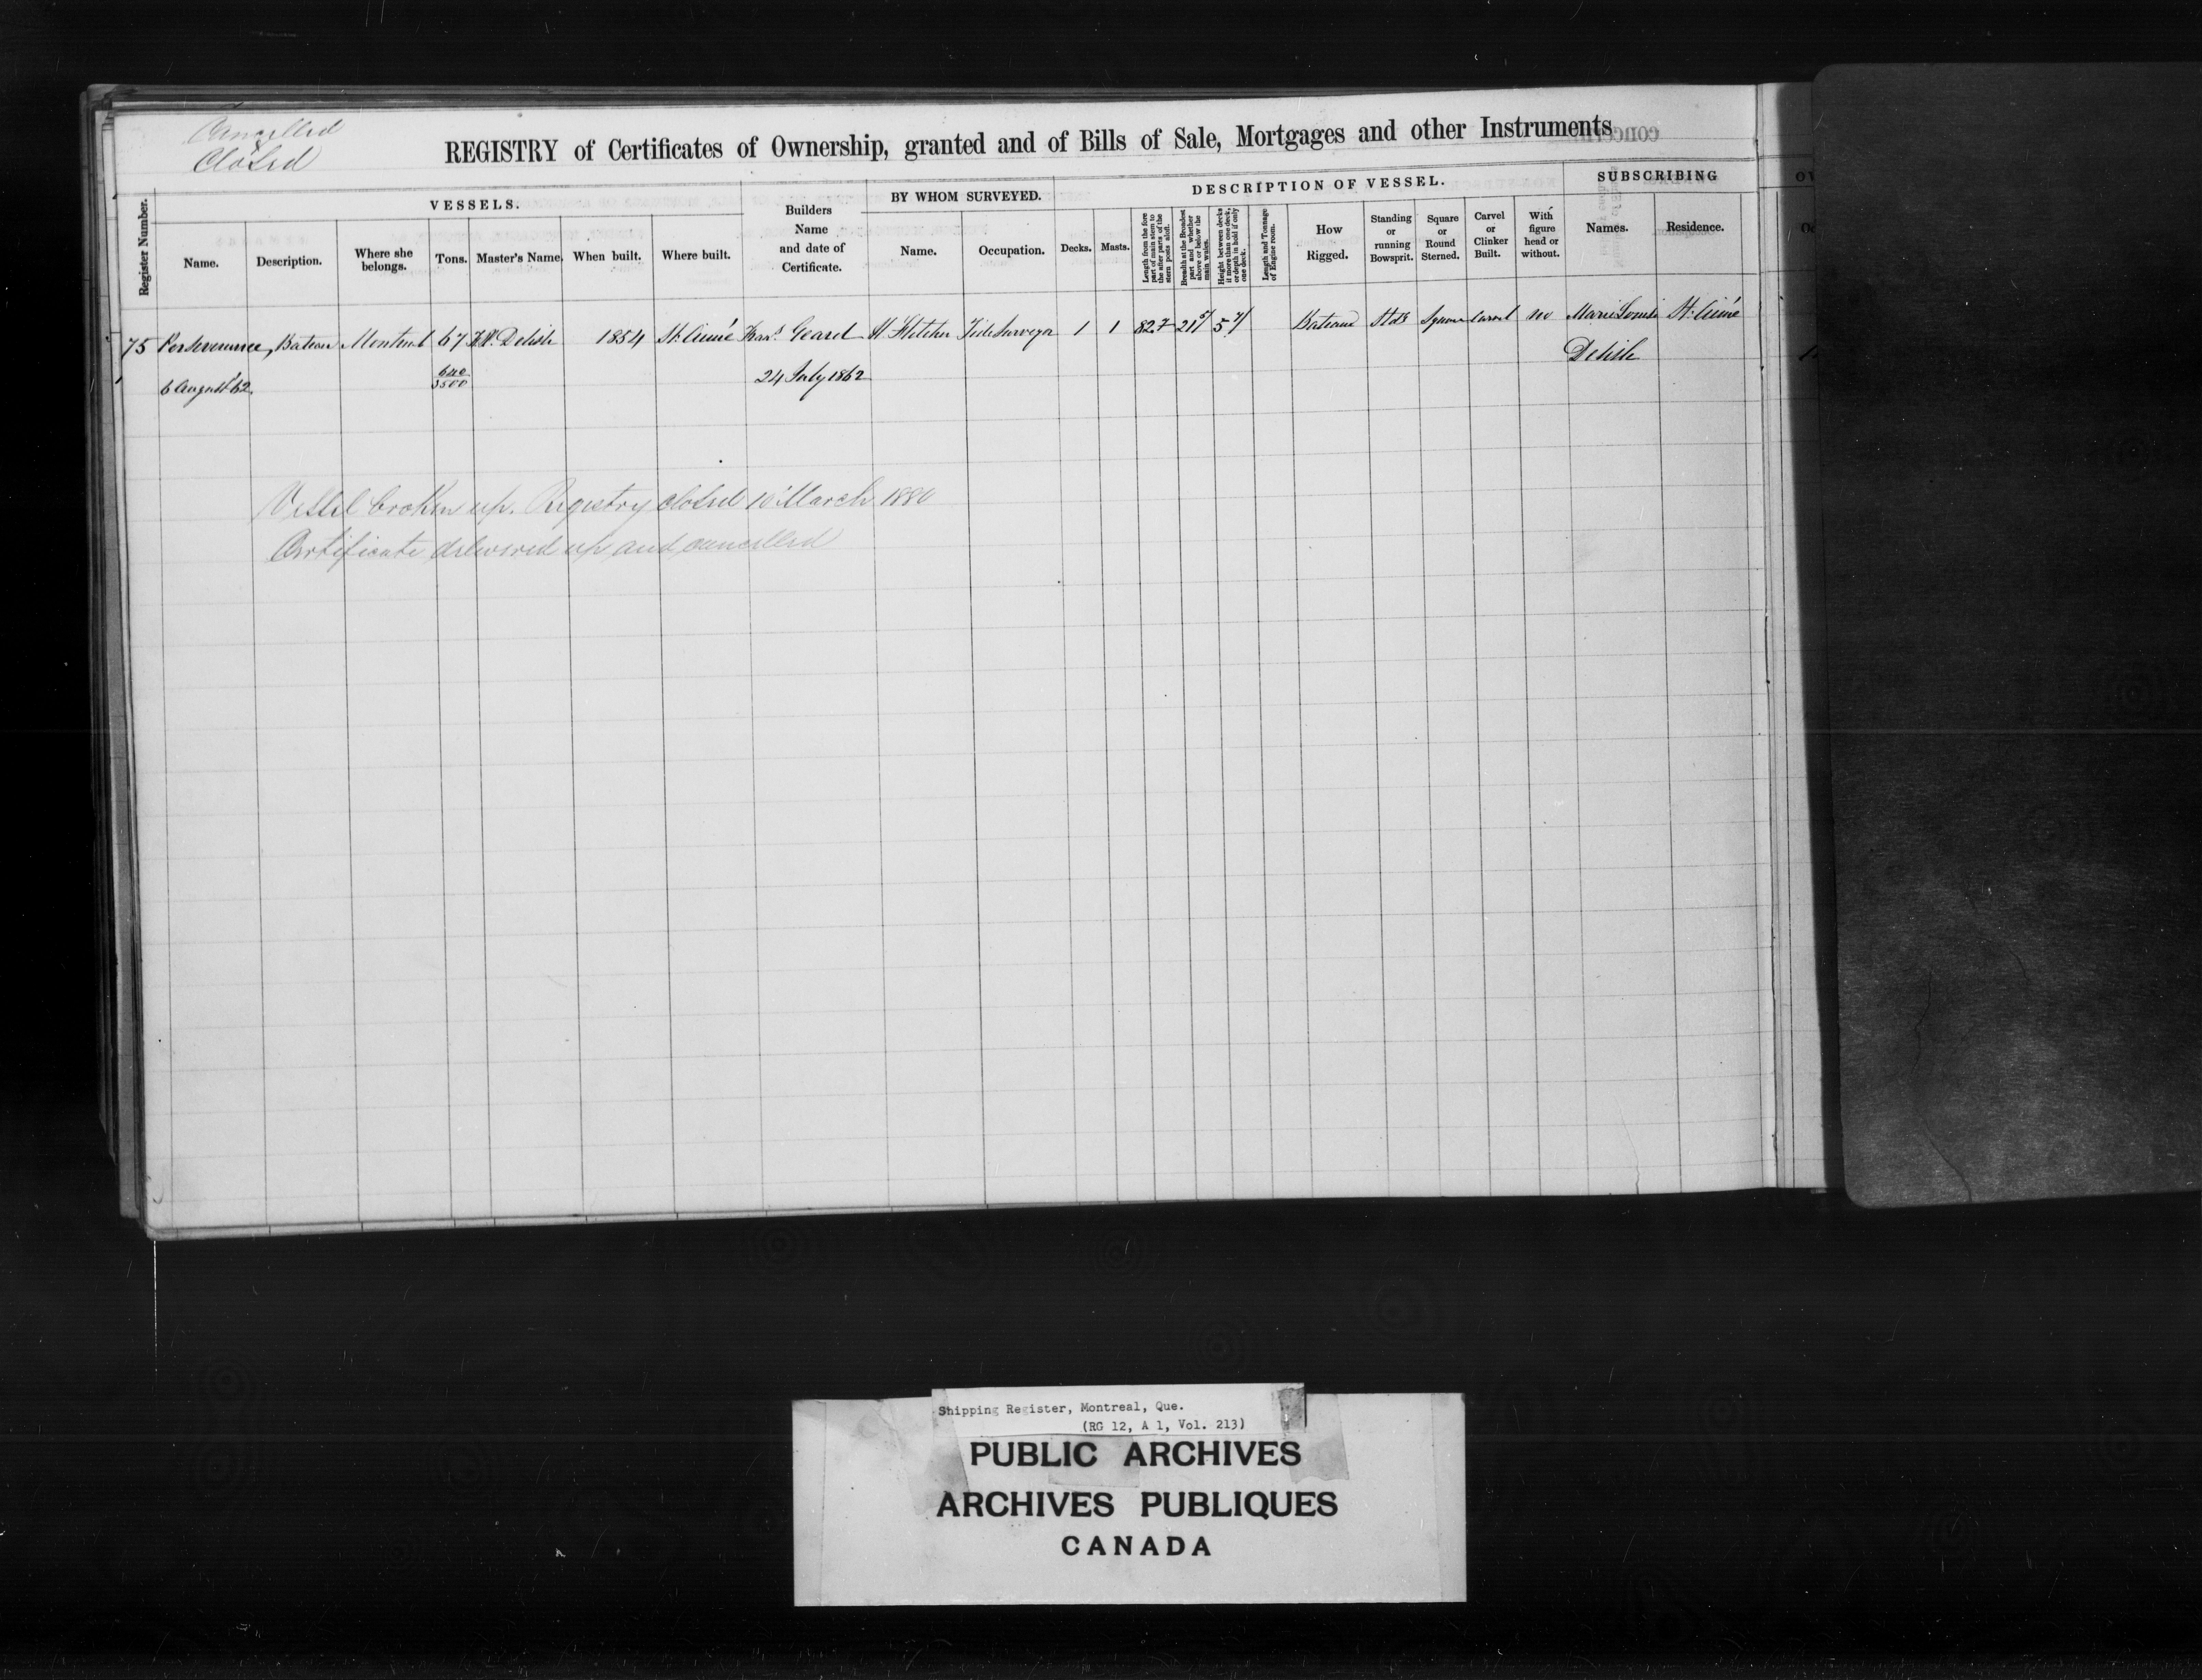 Cancelled
&
Closed
REGISTRY of Certificates of Ownership, granted and of Bills of Sale, Mortgages and other Instruments
Register Number.
VESSELS.
Name.
Description.
Where she belongs.
Tons.
Master's Name.
When built.
Where built.
Builders Name and date of Certificate.
BY WHOM SURVEYED.
Name.
Occupation.
DESCRIPTION OF VESSEL.
Decks.
Masts.
Length from the fore part of main stem to the after parts of the stern posts aloft.
Breadth at the Broadest part and whether above or below the main wales.
Height between decks if more than one deck, or depth in hold if only one deck.
Length and Tonnage of Engine room.
How Rigged.
Standing or running Bowsprit.
Square or Round Sterned.
Carvel or Clinker Built.
With figure head or without.
SUBSCRIBING
Names.
Residence.
75 Perseverance, Bateau Montreal 67 Delisle 1854 St. Aimé Geard Fletcher Tide Surveyor 1 1 82.7 21 5/ 5 7/ Bateau Std'g Square Carvel no Marie Louise St. Aimé
Delisle
6 August '62. 640/3500 24 July 1862
Vessel broken up. Registry closed 10 March 1880
Certificate delivered up and cancelled
Shipping Register, Montreal, Que.
(RG 12, A 1, Vol. 213)
PUBLIC ARCHIVES
ARCHIVES PUBLIQUES
CANADA